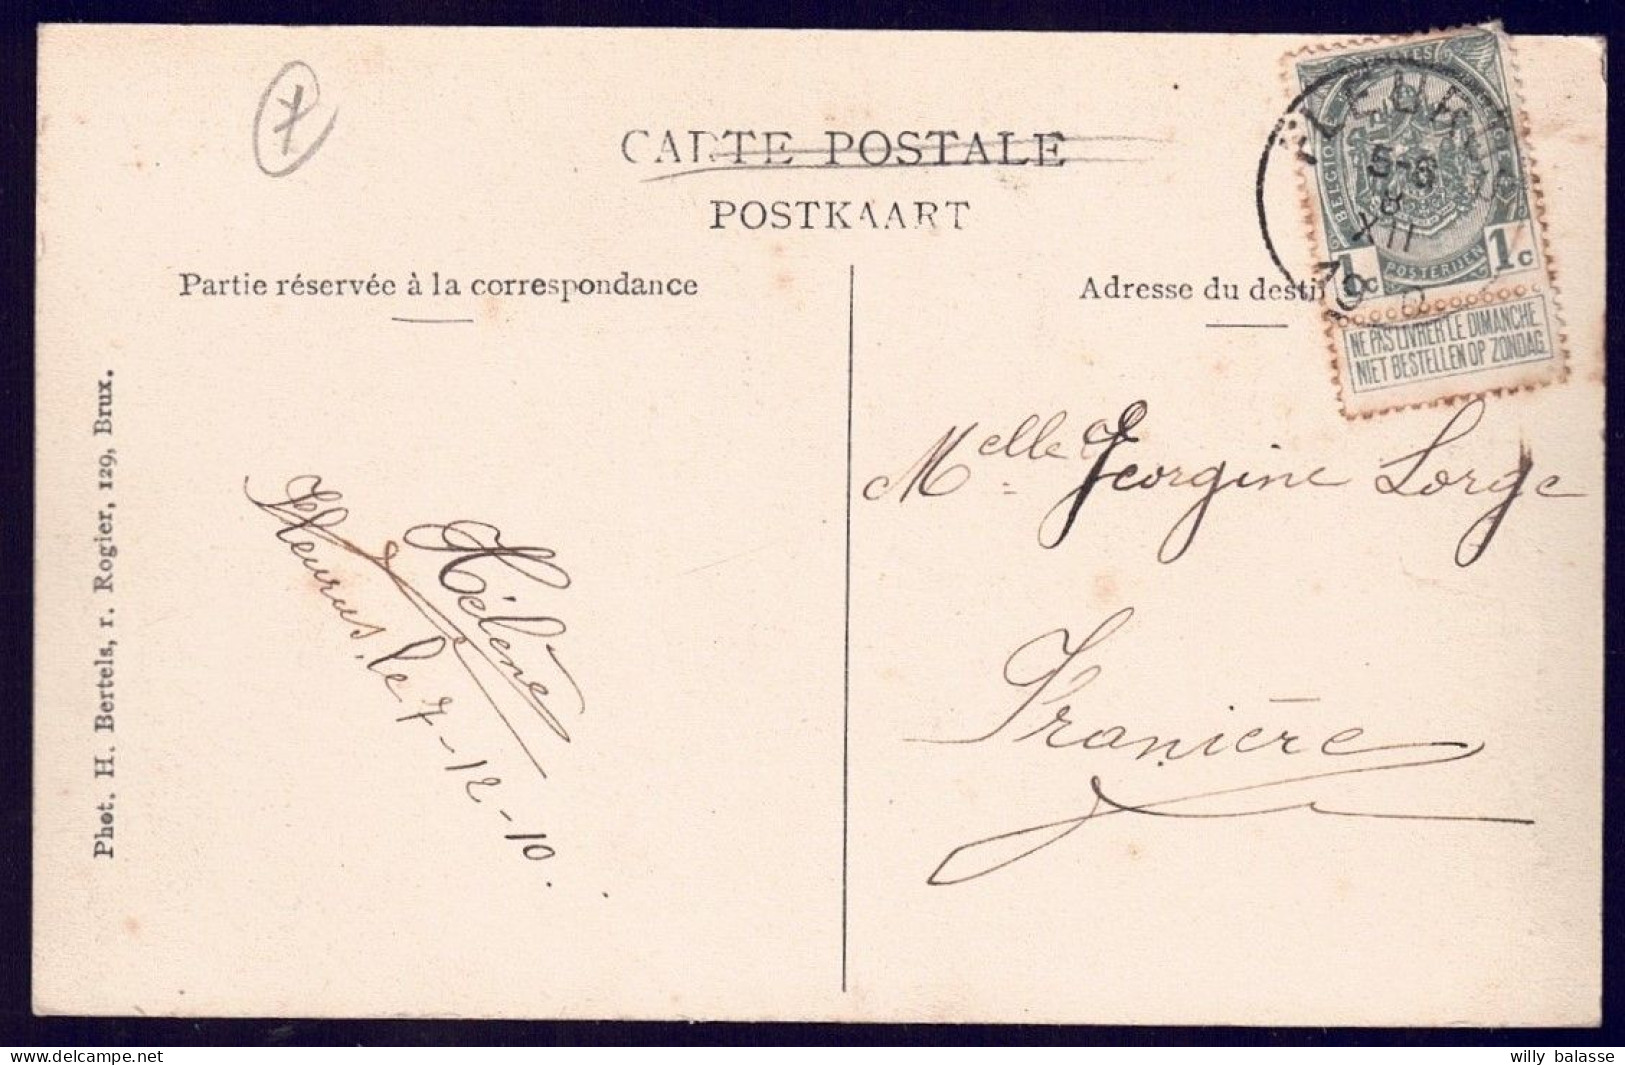 7
CARTE POSTALE
POSTKAART
Partie réservée à la correspondance
Adresse du destin
FLEURUS
5-6
8
XII
POSTES
BELGIQUE
POSTERIJEN
1c 1c
NE PAS LIVRER LE DIMANCHE
NIET BESTELLEN OP ZONDAG
Phot. H. Bertels, r. Rogier, 129, Brux.
Hélène
Fleurus, le 7-12-10.
Melle Georgine Lorge
Franière
willy balasse